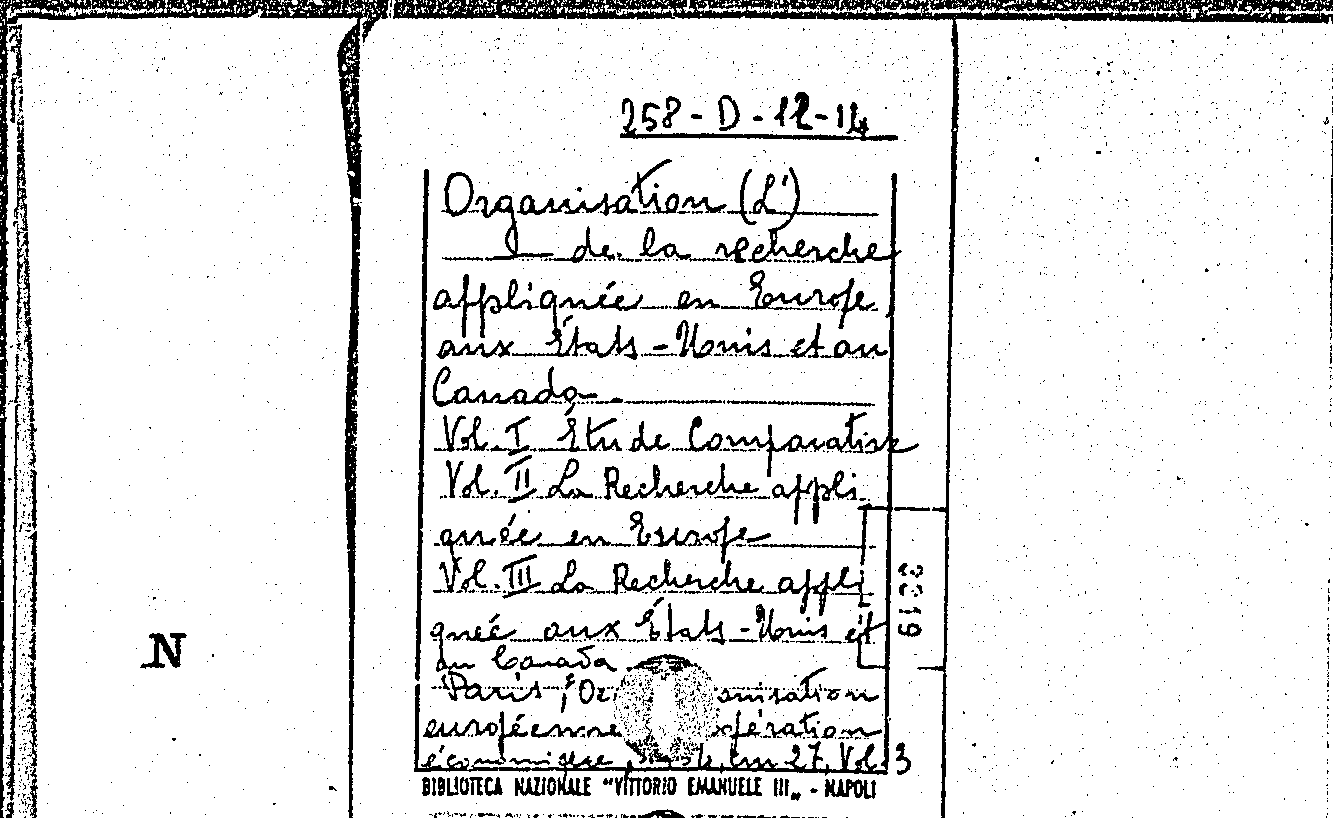 258-D-12-14
Organisation (L')
de la recherche
appliquée en Europe,
aux États-Unis et au
Canada.
Vol. I Étude Comparative
Vol. II La Recherche appli
quée en Europe
Vol. III La Recherche appli
quée aux États-Unis et
au Canada
Paris, anisation
européenne opération
économique, cm 27, Vol. 3
BIBLIOTECA NAZIONALE "VITTORIO EMANUELE III„ - NAPOLI
N